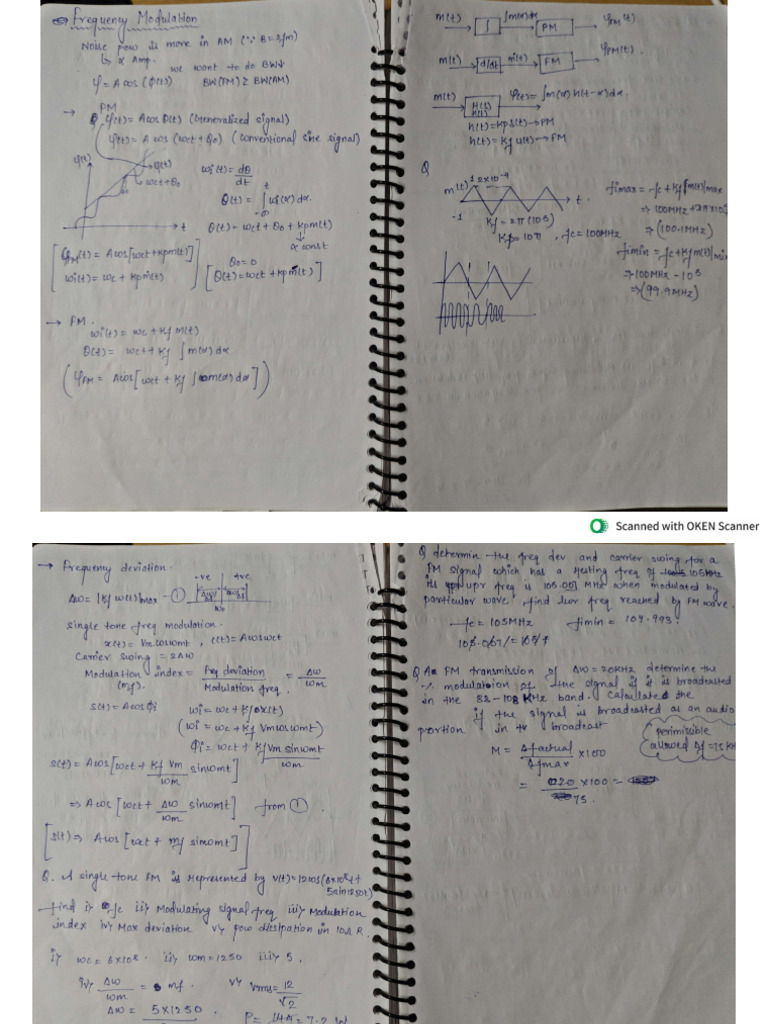 Frequency Modulation
Noise pow is more in AM (∵ B=2fm)
↳ α Amp.
we want to do BW↓
φ = A cos (ϕ(t)) BW(FM) ≥ BW(AM)
→ PM
φ(t) = A cos θ(t) (Generalized signal)
φ(t) = A cos (wct + θ0) (conventional sine signal)
φ(t)
θ(t)
wct + θ0
t
wi(t) = dθ/dt
θ(t) = ∫ wi(α) dα
t
-∞
θ(t) = wct + θ0 + kpm(t)
α const
θ0 = 0
[φPM(t) = A cos[wct + kpm(t)]
wi(t) = wc + kpṁ(t)]
[θ(t) = wct + kpm(t)]
→ FM.
wi(t) = wc + kf m(t)
θ(t) = wct + kf ∫ m(α) dα
(φFM = A cos [wct + kf ∫ m(α) dα])
m(t) → ∫ → ∫m(α)dα → PM → φFM(t)
m(t) → d/dt → ṁ(t) → FM → φPM(t).
m(t) → H(s) h(t) → φ(t) = ∫ m(α) h(t-α) dα
h(t) = kp δ(t) → PM
h(t) = kf u(t) → FM
Q
m(t) 1 2×10⁻⁴
-1
t
kf = 2π(10⁵)
kp = 10π, fc = 100MHz
fimax = fc + kf m(t)|max
(100.1MHz)
fimin = fc + kf m(t)|min
⇒ 100MHz - 10⁵
⇒ (99.9MHz)
Scanned with OKEN Scanner
→ Frequency deviation.
Δw = |kf m(t)|max - ①
-ve +ve
Δw Δw
wc
Single tone freq modulation.
x(t) = Vm cos wmt, c(t) = A cos wct
Carrier swing = 2Δw
Modulation index (mf) = Freq deviation / Modulation freq. = Δw/wm
s(t) = A cos ϕi
wi = wc + kf x(t)
(wi = wc + kf Vm cos wmt)
ϕi = wct + kf Vm sin wmt / wm
s(t) = A cos [wct + kf Vm/wm sin wmt]
⇒ A cos [wct + Δw/wm sin wmt] from ①
[s(t) ⇒ A cos [wct + mf sin wmt]]
Q. A single tone FM is represented by v(t) = 12 cos(6×10⁸t + 5 sin 1250t)
find i⟩ fc ii⟩ Modulating signal freq iii⟩ Modulation
index iv⟩ Max deviation v⟩ pow dissipation in 10Ω R.
i⟩ wc = 6×10⁸. ii⟩ wm = 1250 iii⟩ 5.
iv⟩ Δw/wm = mf
Δw = 5×1250
v⟩ Vrms = 12/√2
P = = 7.2 W
Q determin the freq dev and carrier swing for a
FM signal which has a resting freq of 105MHz
its upr freq is 105.007 MHz when modulated by
particular wave. find lowr freq reached by FM wave.
fc = 105MHz fimin = 104.993.
Q An FM transmission of Δw = 20KHz determine the
% modulation of the signal if it is broadcasted
in the 88-108 MHz band. Calculate the
if the signal is broadcasted as an audio
portion in tv broadcast
permissible
allowed Δf = 75 KH
M = Δfactual / Δfmax ×100
= 20/75 ×100 =